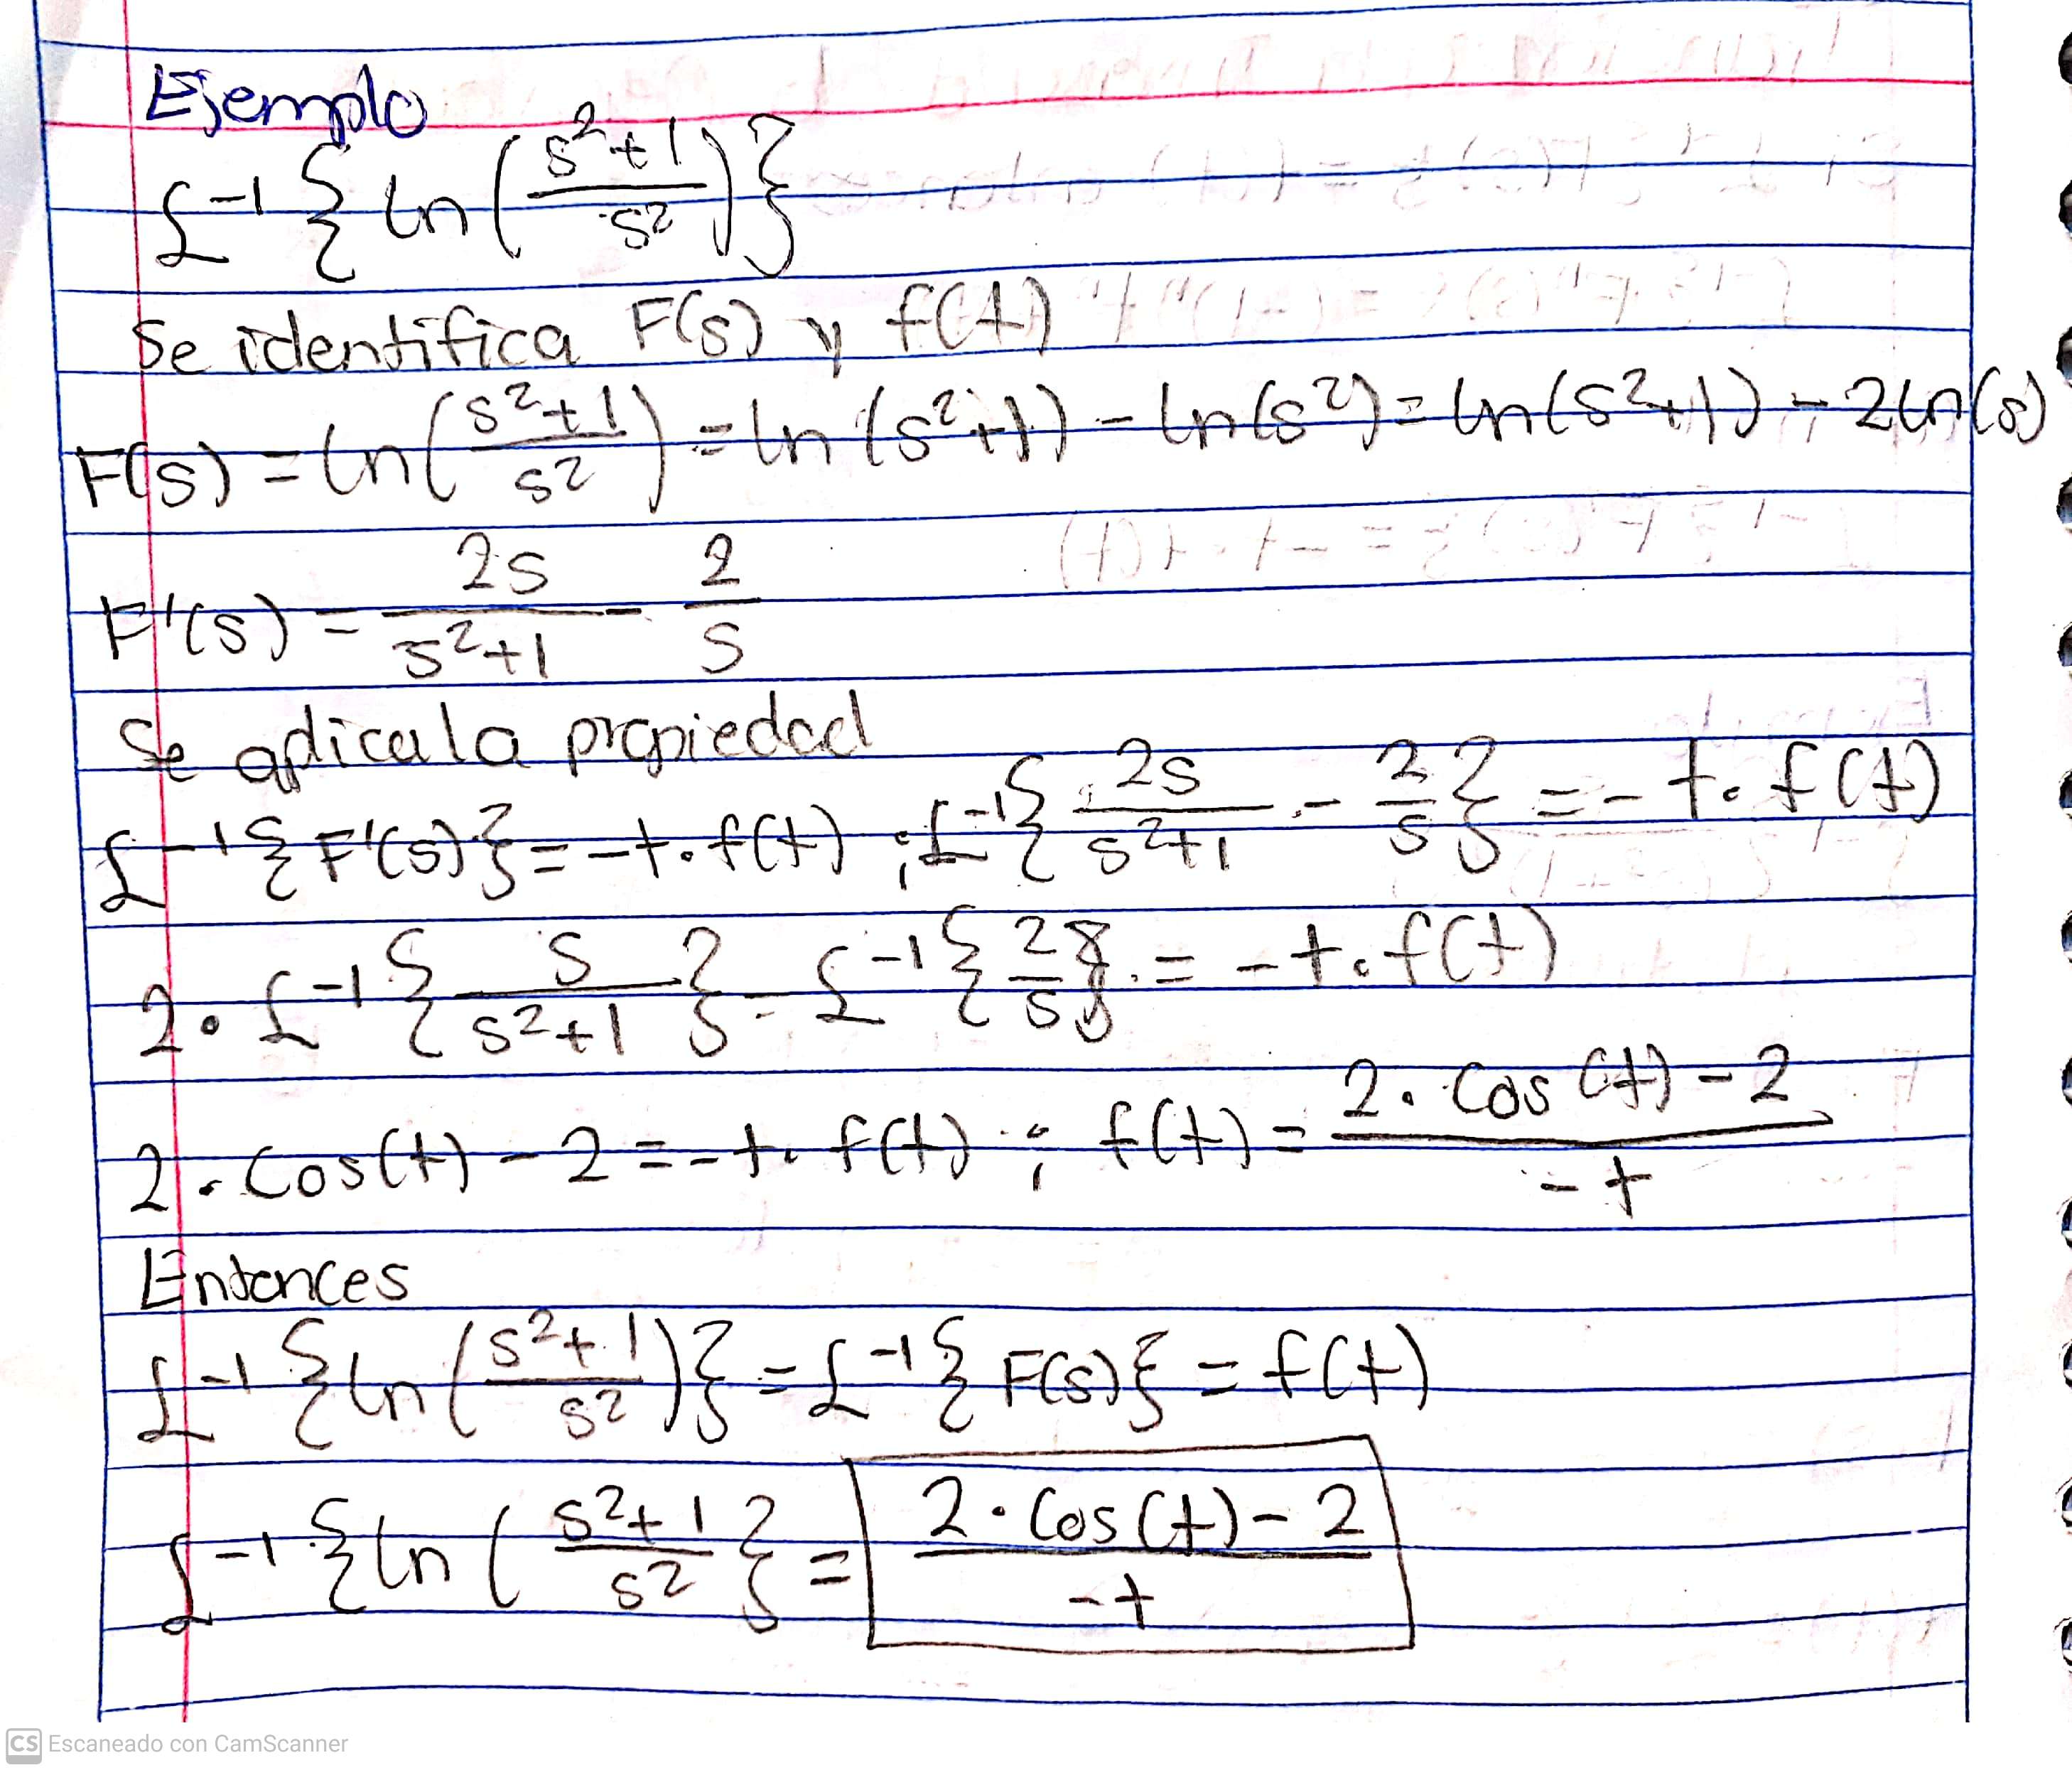 Ejemplo
£⁻¹{ln((s²+1)/s²)}
Se identifica F(s) y f(t)
F(s) = ln((s²+1)/s²) = ln(s²+1) - ln(s²) = ln(s²+1) - 2ln(s)
F'(s) = 2s/(s²+1) - 2/s
Se aplica la propiedad
£⁻¹{F'(s)} = -t·f(t) ; £⁻¹{2s/(s²+1) - 2/s} = -t·f(t)
2·£⁻¹{s/(s²+1)} - £⁻¹{2/s} = -t·f(t)
2·Cos(t) - 2 = -t·f(t) ; f(t) = (2·Cos(t) - 2)/-t
Entonces
£⁻¹{ln((s²+1)/s²)} = £⁻¹{F(s)} = f(t)
£⁻¹{ln((s²+1)/s²} = (2·Cos(t) - 2)/-t
CS Escaneado con CamScanner